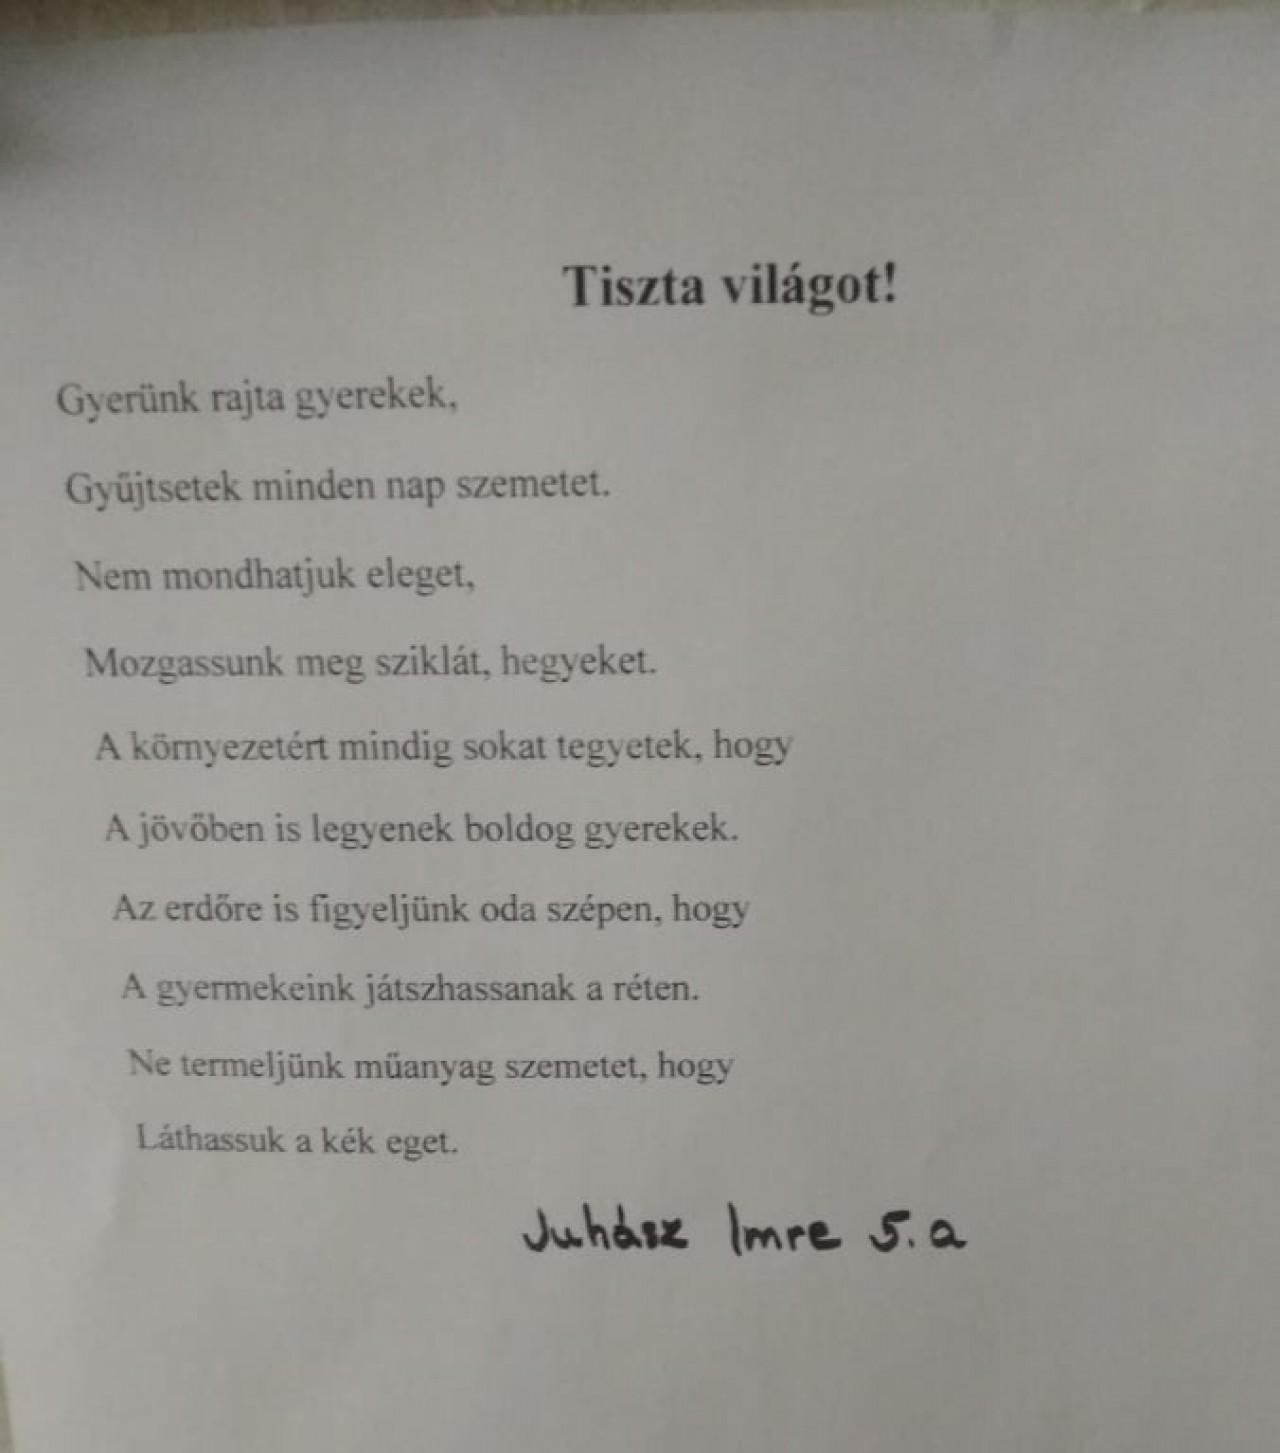 Tiszta világot!
Gyerünk rajta gyerekek,
Gyűjtsetek minden nap szemetet.
Nem mondhatjuk eleget,
Mozgassunk meg sziklát, hegyeket.
A környezetért mindig sokat tegyetek, hogy
A jövőben is legyenek boldog gyerekek.
Az erdőre is figyeljünk oda szépen, hogy
A gyermekeink játszhassanak a réten.
Ne termeljünk műanyag szemetet, hogy
Láthassuk a kék eget.
Juhász Imre 5. a